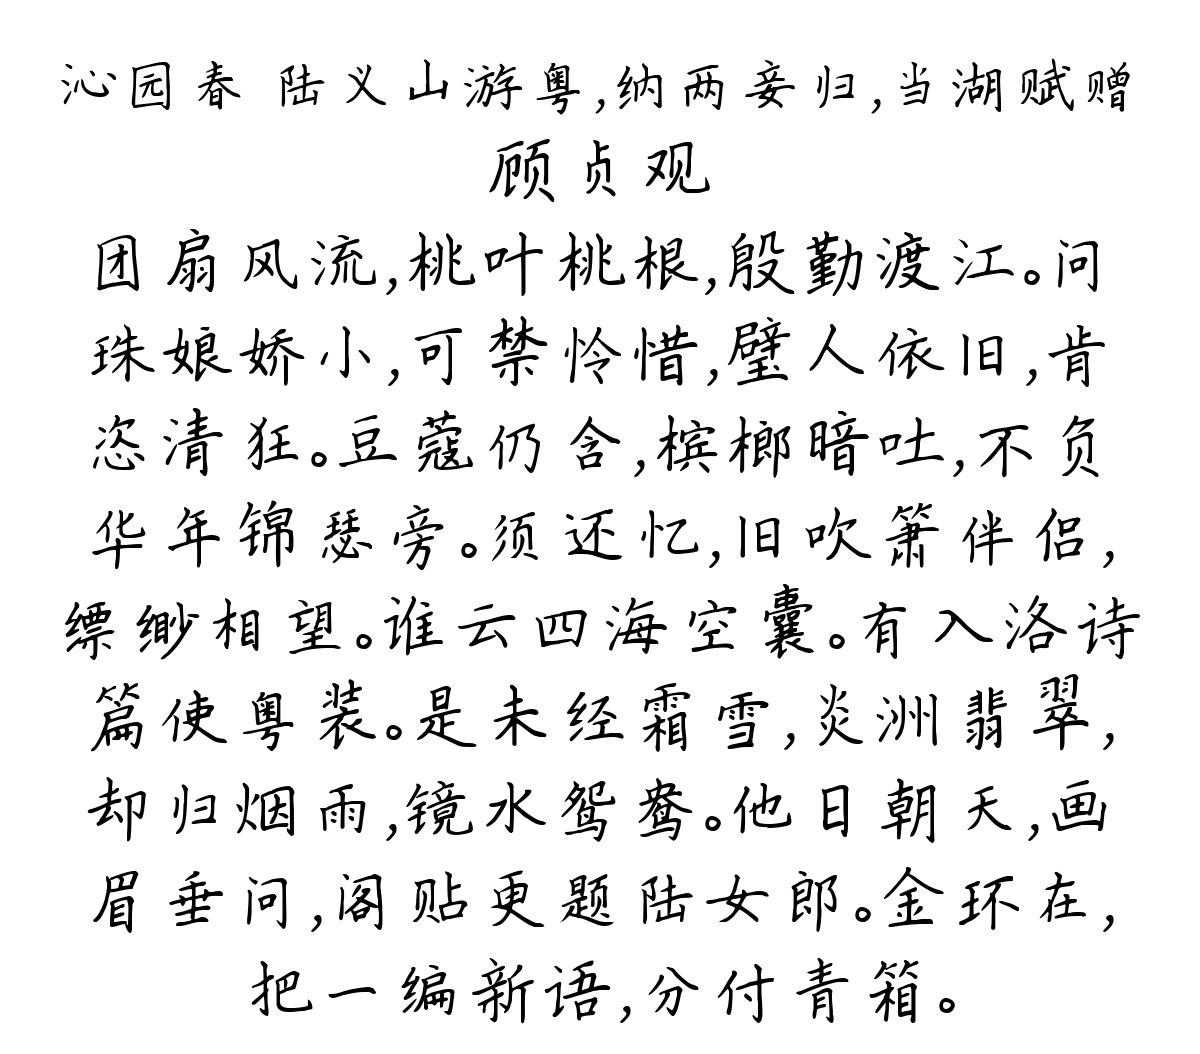 沁园春 陆义山游粤,纳两妾归,当湖赋赠
顾贞观
团扇风流,桃叶桃根,殷勤渡江。问
珠娘娇小,可禁怜惜,璧人依旧,肯
恣清狂。豆蔻仍含,槟榔暗吐,不负
华年锦瑟旁。须还忆,旧吹箫伴侣,
缥缈相望。谁云四海空囊。有入洛诗
篇使粤装。是未经霜雪,炎洲翡翠,
却归烟雨,镜水鸳鸯。他日朝天,画
眉垂问,阁贴更题陆女郎。金环在,
把一编新语,分付青箱。